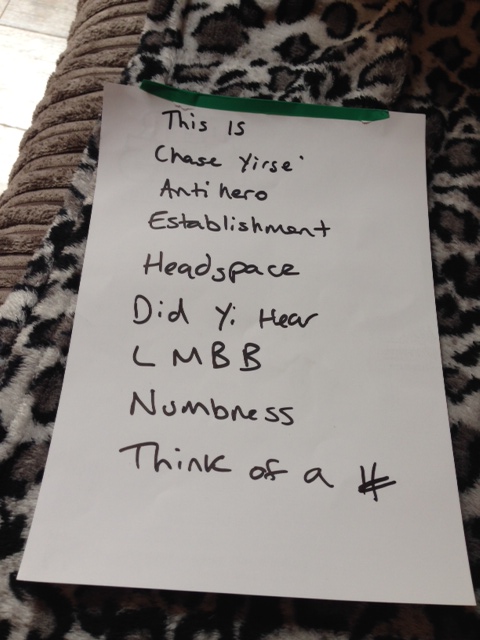 This Is
Chase Yirsel'
Antihero
Establishment
Headspace
Did Yi Hear
L M B B
Numbness
Think of a #